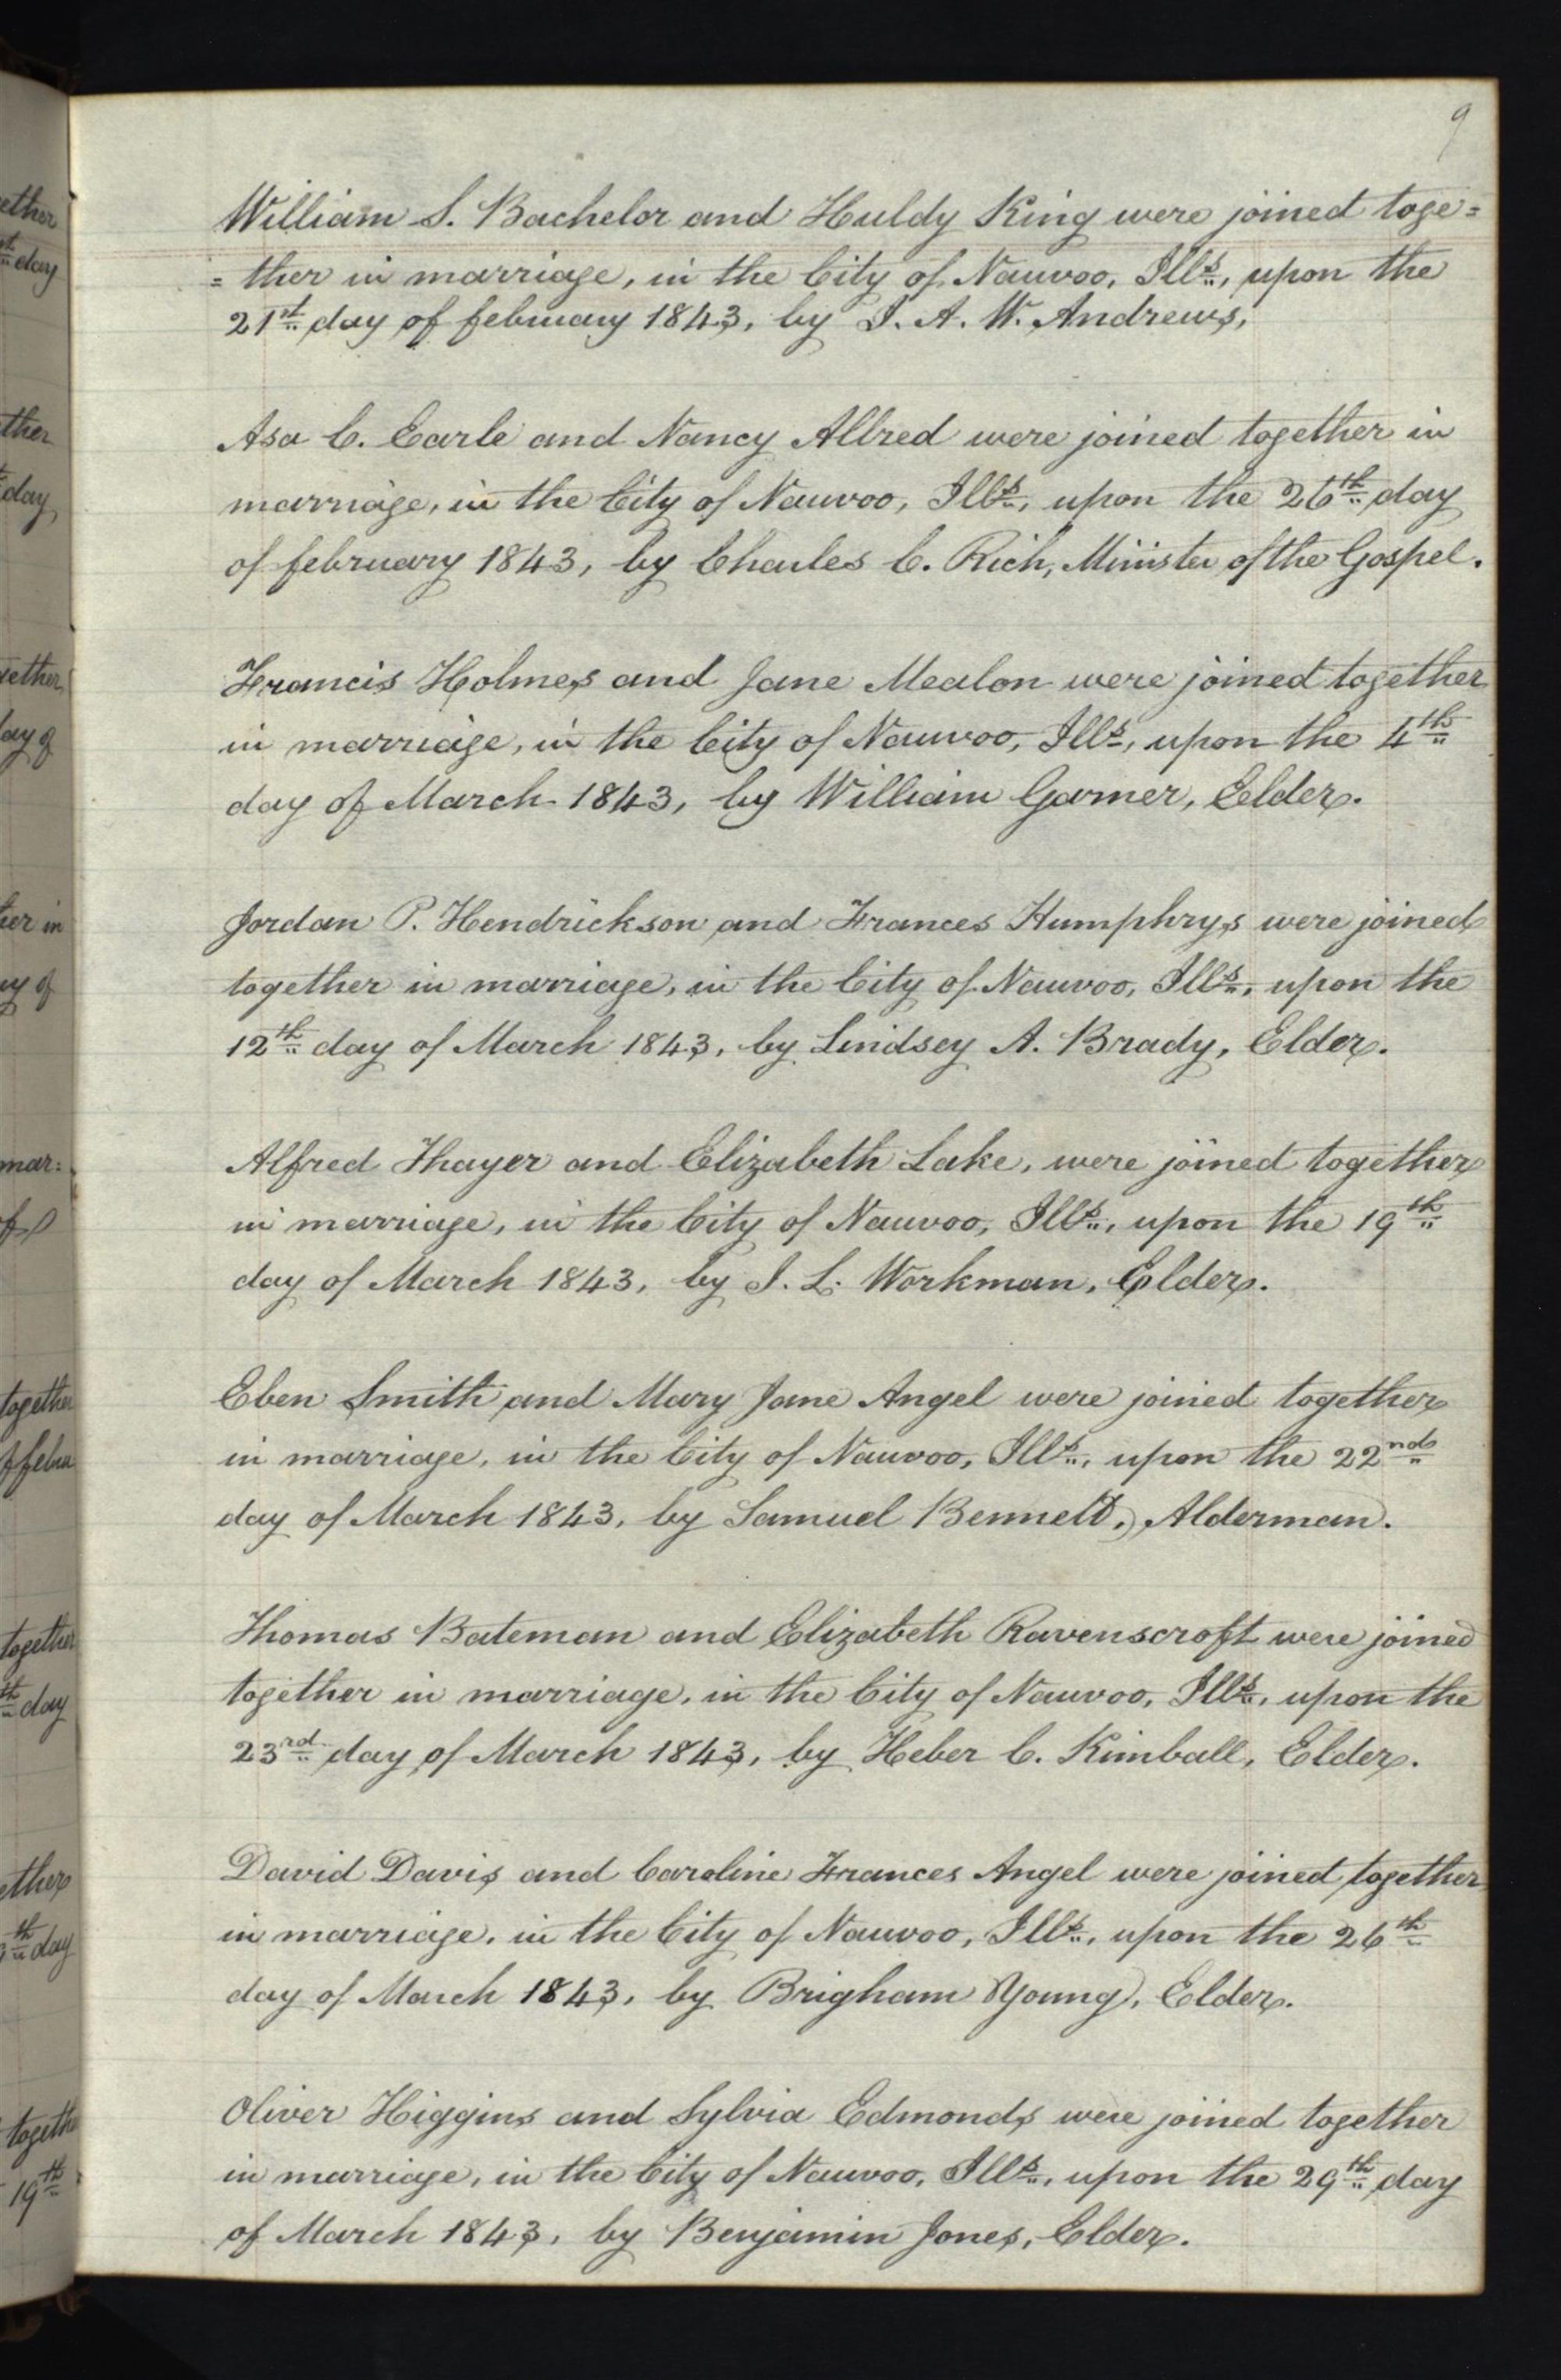 9
William S. Bachelor and Huldy King were joined toge=
=ther in marriage, in the City of Nauvoo, Ills., upon the
21st day of february 1843, by J. A. W. Andrews,
Asa C. Earle and Nancy Allred were joined together in
marriage, in the City of Nauvoo, Ills., upon the 26th day
of february 1843, by Charles C. Rich, Minister of the Gospel.
Francis Holmes and Jane Mealon were joined together
in marriage, in the City of Nauvoo, Ills, upon the 4th
day of March 1843, by William Garner, Elder.
Jordan P. Hendrickson and Frances Humphrys were joined
together in marriage, in the City of Nauvoo, Ills., upon the
12th day of March 1843, by Lindsey A. Brady, Elder.
Alfred Thayer and Elizabeth Lake, were joined together
in marriage, in the City of Nauvoo, Ills., upon the 19th
day of March 1843, by J. L. Workman, Elder.
Eben Smith and Mary Jane Angel were joined together
in marriage, in the City of Nauvoo, Ills., upon the 22nd
day of March 1843, by Samuel Bennett, Alderman.
Thomas Bateman and Elizabeth Ravenscroft were joined
together in marriage, in the City of Nauvoo, Ills., upon the
23rd day of March 1843, by Heber C. Kimball, Elder.
David Davis and Caroline Frances Angel were joined together
in marriage, in the City of Nauvoo, Ills., upon the 26th
day of March 1843, by Brigham Young, Elder.
Oliver Higgins and Sylvia Edmonds were joined together
in marriage, in the City of Nauvoo, Ills., upon the 29th day
of March 1843, by Benjamin Jones, Elder.